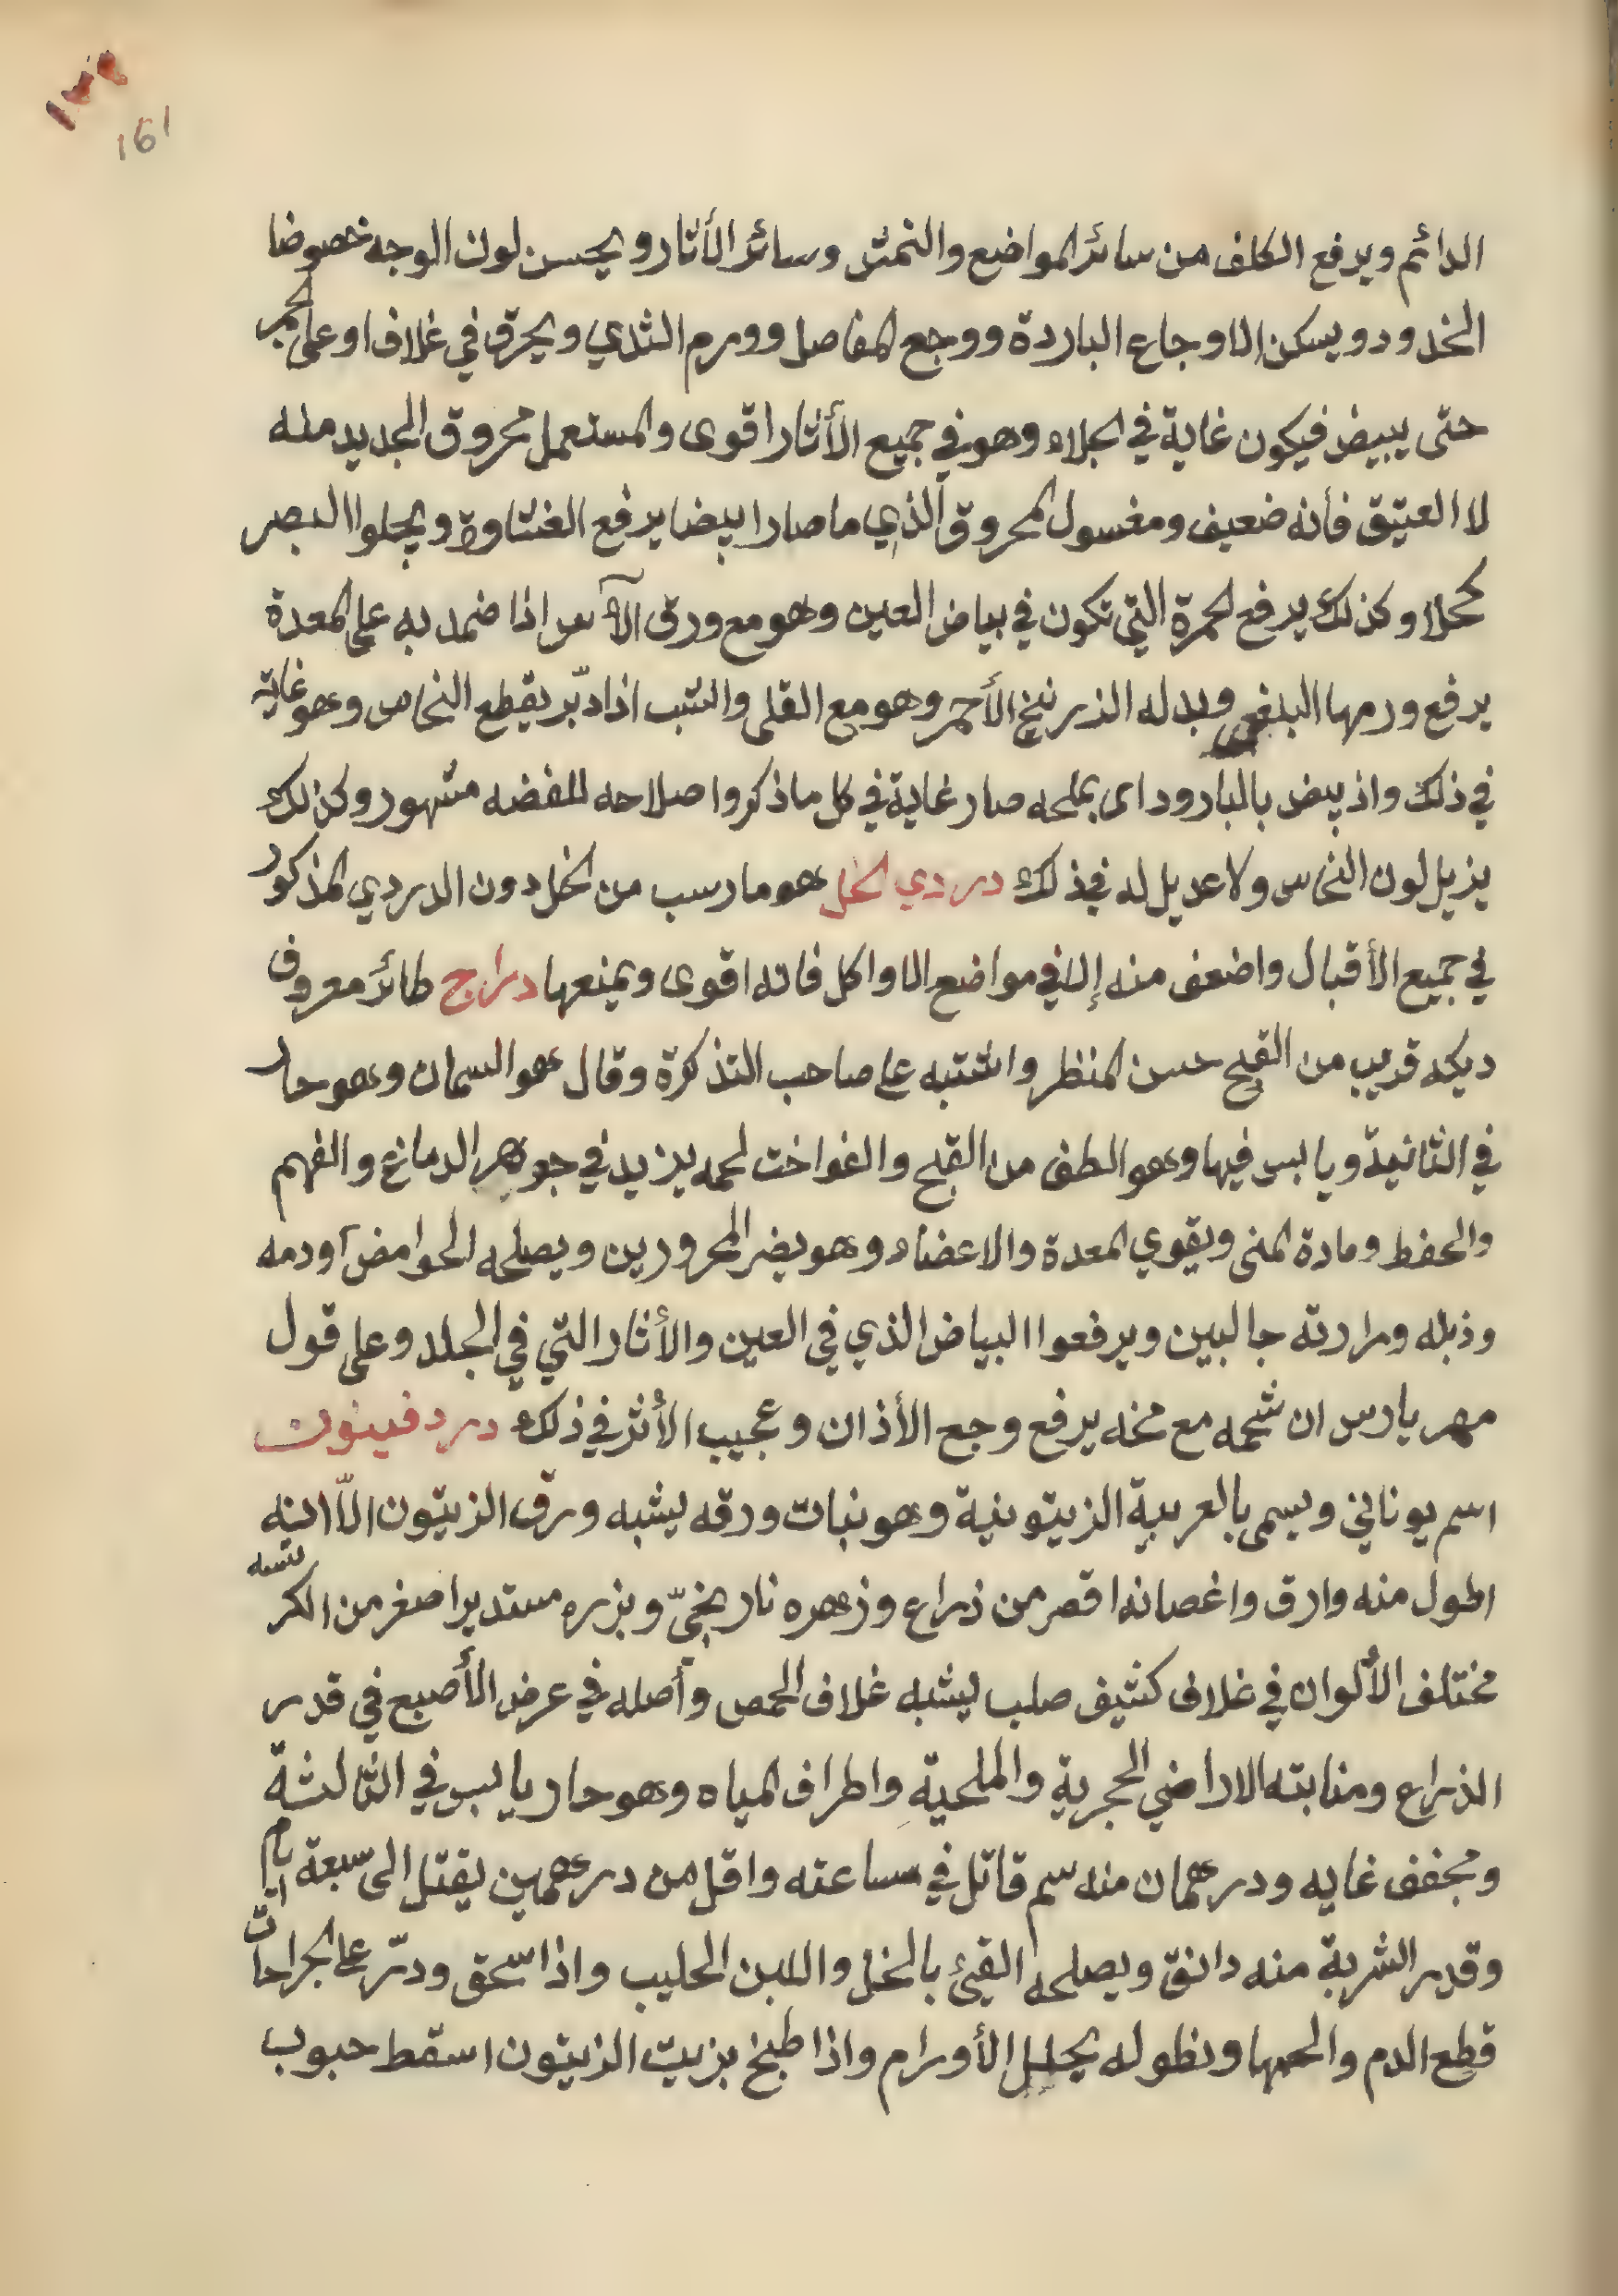 ١٥٩
161
الدائم ويرفع الكلف من سائر المواضع والنمش وسائر الأثار ويحسن لون الوجه خصوصا
الخدود ويسكن الاوجاع الباردة ووجع المفاصل وورم الثدي ويحرق في غلاف او على الجمر
حتى يبيض فيكون غاية في الجلاء وهو في جميع الأثار اقوى والمستعمل محروق الجديد منه
لا العتيق فأنه ضعيف ومغسول المحروق الذي ما صار ابيضا يرفع الغشاوة ويجلوا البصر
كحلا وكذلك يرفع الحمرة التي تكون في بياض العين وهو مع ورق الآس اذا ضمد به على المعدة
يرفع ورمها البلغمي وبدله الزرنيخ الأحمر وهو مع القلى والشب اذا دبّر يقطع النحاس وهو غاية
في ذلك واذ بيض بالبارود اى بملحه صار غاية في كل ما ذكر واصلاحه للفضه مشهور وكذلك
يزيل لون النحاس ولا عديل له في ذلك دردي الخل هو ما رسب من الخل دون الدردي المذكور
في جميع الأقبال واضعف منه إلا في مواضع الاواكل فانه اقوى ويمنعها دراج طائر معروف
ديكه قريب من القبج حسن المنظر واشتبه على صاحب التذكرة وقال هو السمان وهو حار
في الثانية ويابس فيها وهو الطف من القبج والفواخت لحمه يزيد في جوهر الدماغ والفهم
والحفظ ومادة المنى ويقوي المعدة والاعضاء وهو يضر المحرورين ويصلحه الحوامض ودمه
وذبله ومرارته جالبين ويرفعوا البياض الذي في العين والأثار التي في الجلد وعلى قول
مهريارس ان شحمه مع مخه يرفع وجع الأذان وعجيب الأثر في ذلك دردفينون
اسم يوناني ويسمى بالعربية الزيتونية وهو نبات ورقه يشبه ورق الزيتون الاّ انه
اطول منه وارق واغصانه اقصر من ذراع وزهره نارنجيّ وبزره مستدير اصغر من الكرسنه
مختلف الألوان في غلاف كثيف صلب يشبه غلاف الحمص وأصله في عرض الأصبع في قدر
الذراع ومنابته الاراضي الحجرية والملحية واطراف المياه وهو حار يابس في الثالثة
ومجفف غايه ودرهمان منه سم قاتل في ساعته واقل من درهمين يقتل الى سبعة ايام
وقدر الشربة منه دانق ويصلحه القيئ بالخل واللبن الحليب واذا سحق وذرّ على الجراحات
قطع الدم والحمها ونطوله يحلل الأورام واذا طبخ بزيت الزيتون اسقط حبوب